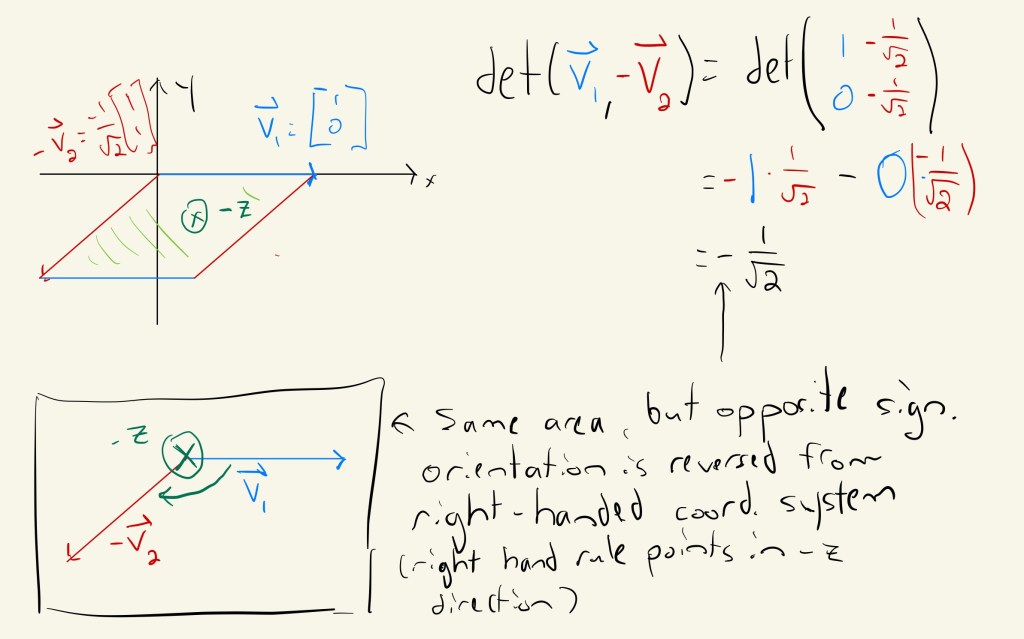 det(V⃗₁, -V⃗₂) = det( 1 -1/√2
0 -1/√2 )
= -1 · 1/√2 - 0(-1/√2)
= - 1/√2
Y
-V⃗₂ = -1/√2 [1
1]
V⃗₁ = [1
0]
x
ⓧ -z
-z
V⃗₁
-V⃗₂
← Same area, but opposite sign.
orientation is reversed from
right-handed coord. system
(right hand rule points in -z
direction)